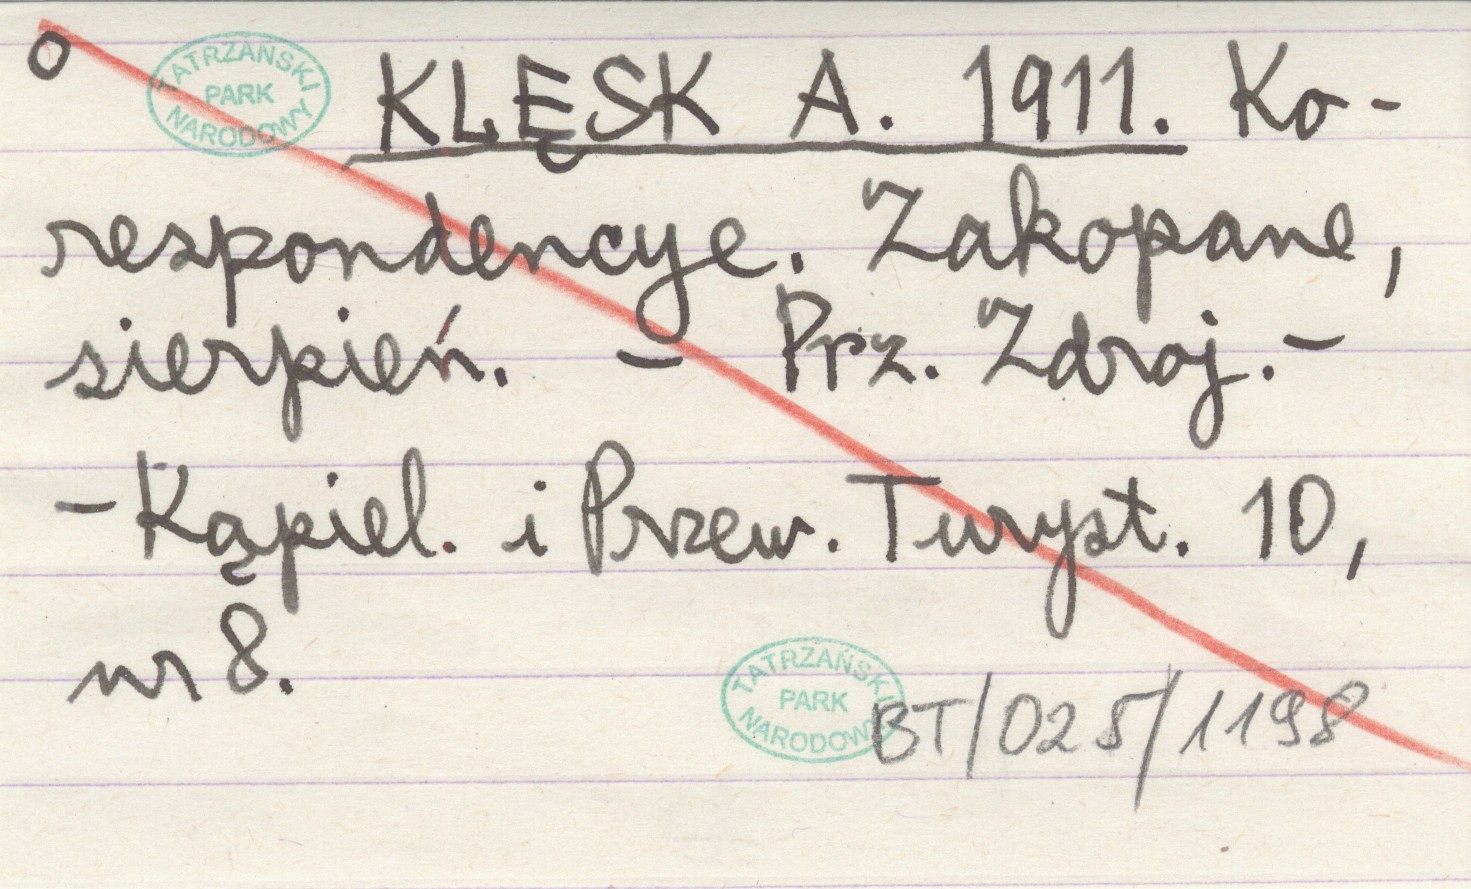 o
TATRZAŃSKI
PARK
NARODOWY
KLĘSK A. 1911. Ko-
respondencye. Zakopane,
sierpień. – Prz. Zdroj.-
-Kąpiel. i Przew. Turyst. 10,
nr 8.
TATRZAŃSKI
PARK
NARODOWY
BT/025/1198